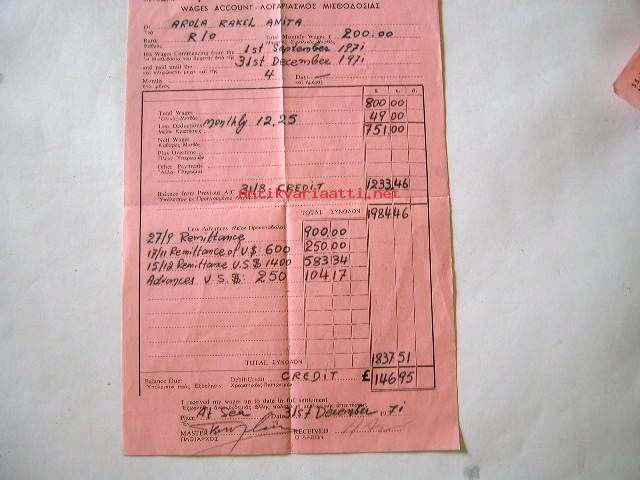 WAGES ACCOUNT - ΛΟΓΑΡΙΑΣΜΟΣ ΜΙΣΘΟΔΟΣΙΑΣ
Of AROLA RAKEL ANITA
Rank R/O Total Monthly Wages £ 200.00
His Wages Commencing from the 1st September 1971
and paid until the 31st December 1971
Months 4 Days —
Total Wages 800 00
Less Deductions monthly 12.25 49 00
Nett Wages 751 00
Plus Overtime
Other Payments
Balance from Previous A/C 31/8 CREDIT 1233.46
antikvariaatti.net
TOTAL ΣΥΝΟΛΟΝ 1984 46
Less Advances
27/9 Remittance 900.00
17/11 Remittance of U.$ 600 250.00
15/12 Remittance U.S.$ 1400 583 34
Advances U.S.$. 250 104 17
1837.51
TOTAL ΣΥΝΟΛΟΝ
Balance Due: Debit/Credit CREDIT £ 146 95
I received my wages up to date in full settlement
Place At Sea Date 31st December 1971
MASTER RECEIVED
ΠΛΟΙΑΡΧΟΣ Ο ΛΑΒΩΝ